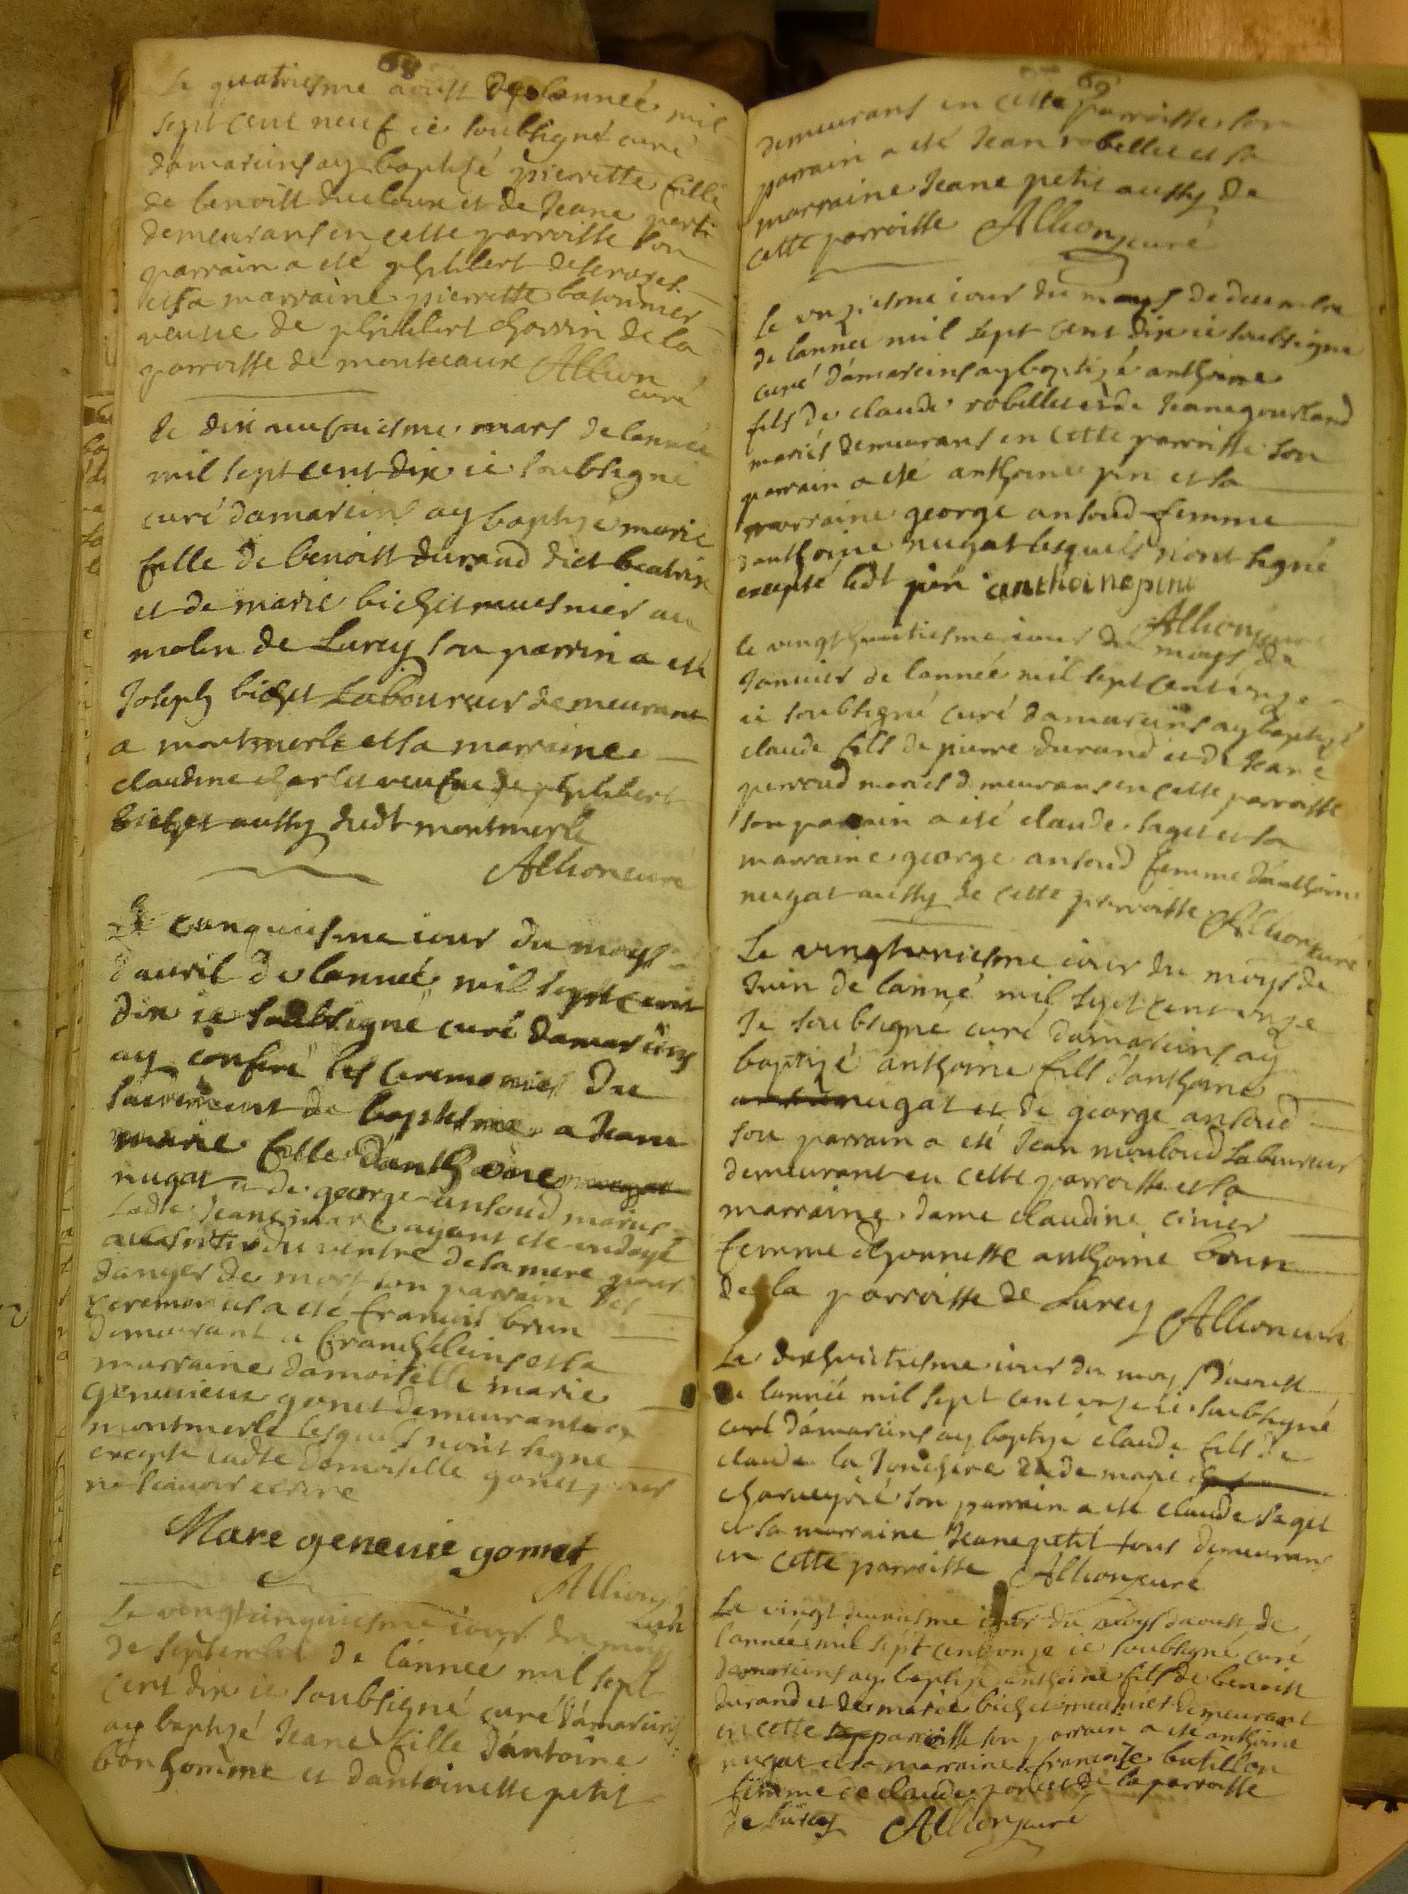 68
Le quatriesme aoust de lannéé mil
sept cent neuf ie soubsigné curé
damareins ay baptisé pierrette fille
de benoist ducloux et de Jeane petit
demeurans en cette parroisse son
parrain a esté philibert
et sa marraine pierrette batonnier
veufue de philibert chossin de la
parroisse de montceaux Allion
curé
Le dix neufuiesme mars de lannéé
mil sept cent dix ie soubsigné
curé damareins ay baptizé marie
fille de benoist durand dict beatrix
et de marie bichet musnier au
molin de Lurcy son parrin a esté
Joseph bichet Laboureur demeurant
a montmerle et sa marraine
claudine charlet veufue de philibert
bichet aussy dudt montmerle
Allion curé
Le cinquiesme iour du moys
dauril de lanneé mil sept cent
dix ie soubsigné curé damareins
ay conferé les ceremonies du
sacrement de baptesme a Jeane
marie fille d'anthoine
nugat et de george ansoud mariés
Ladte Jeane marie ayant esté ondoyé
a la sortie du ventre de la mere pour
danger de mort son parrain des
ceremonies a esté francois brun
demeurant a francheleins et sa
marraine damoiselle marie
geneuieue gonet demeurante a
montmerle lesquels n'ont signé
excepté ladte damoiselle gonet pour
ne scauoir escrire
Mare geneuie gonnet
Allion
curé
Le vingtcinquiesme iour du moys
de septembre de l'année mil sept
cent dix ie soubsigné curé d'amareins
ay baptizé Jeane fille d'antoine
bonhomme et dantoinette petit
69
demeurans en cette parroisse son
parrain a esté Jean robellet et sa
marraine Jeane petit aussy de
cette parroisse Allion curé
Le onziesme iour du moys de decembre
de lannéé mil sept cent dix ie soubsigné
curé d'amareins ay baptizé anthoine
fils de claude robellet et de Jeane gourland
mariés demeurans en cette parroisse son
parrain a esté anthoine pin et sa
marraine george ansoud femme
d'anthoine nugat lesquels n'ont signé
excepté ledt pin anthoine pin
Allion curé
le vingthuictiesme iour du moys de
Januier de lannéé mil sept cent onze
ie soubsigné curé damareins ay baptizé
claude fils de pierre durand et de Jeane
perroud mariés demeurans en cette parroisse
son parrain a esté claude saget et sa
marraine george ansoud femme d'anthoine
nugat aussy de cette parroisse Allion curé
Le vingthuniesme iour du moys de
Juin de lanné mil sept cent onze
Je soubsigné curé damareins ay
baptizé anthoine fils d'anthoine
nugat et de george ansoud
son parrain a esté Jean monloud Laboureur
demeurant en cette parroisse et sa
marraine dame claudine cinier
femme d'honneste anthoine brun
de la parroisse de Lurcy Allion curé
Le dixhuictiesme iour du moys d'aoust
de lannéé mil sept cent onze ie soubsigné
curé d'amareins ay baptizé claude fils de
claude la Jonchere et de marie
charueyrié son parrain a esté claude saget
et sa marraine Jeane petit tous demeurans
en cette parroisse Allion curé
Le vingt deuxiesme iour du moys daoust de
lannéé mil sept cent onze ie soubsigné curé
damareins ay baptizé anthoine fils de benoist
durand et de marie bichet meusnier demeurant
en cette parroisse son parrain a esté anthoine
nugat et sa marraine francoise butillon
femme de claude poncet de la parroisse
de Lurcy Allion curé